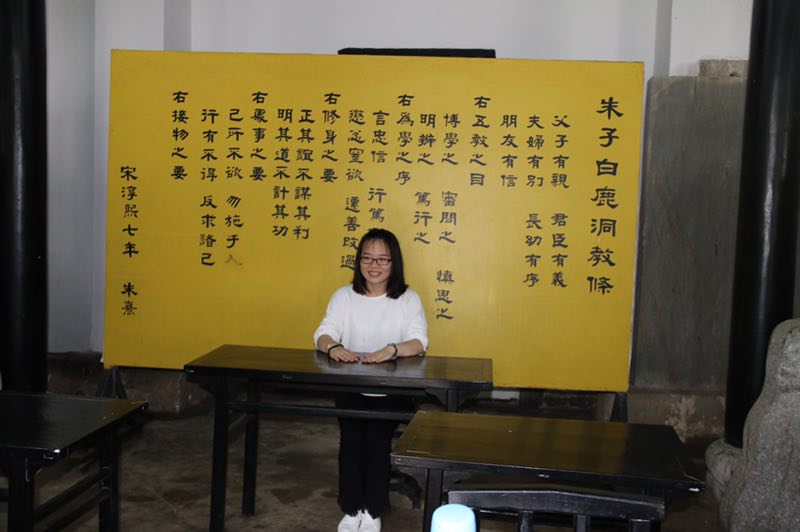 朱子白鹿洞教條
父子有親 君臣有義
夫婦有別 長幼有序
朋友有信
右五教之目
博學之 審問之 慎思之
明辨之 篤行之
右為學之序
言忠信 行篤
懲忿窒欲 遷善改過
右修身之要
正其誼不謀其利
明其道不計其功
右處事之要
己所不欲 勿施于人
行有不得 反求諸己
右接物之要
宋淳熙七年 朱熹